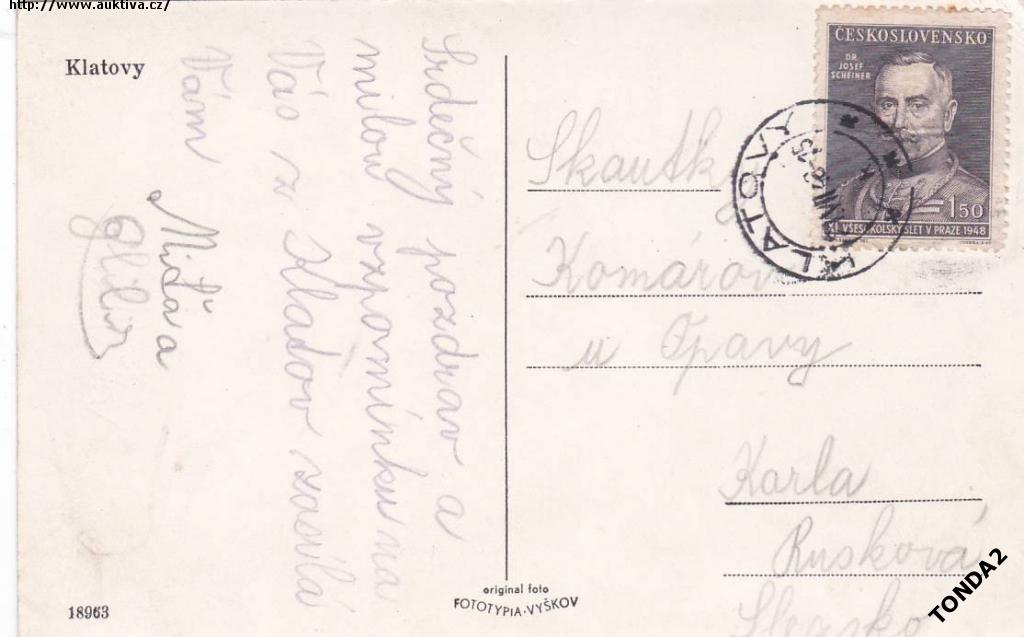 http://www.auktiva.cz/
Klatovy
Srdečný pozdrav a
milou vzpomínku na
Vás z Kladov zasílá
Vám
Miďa a
ČESKOSLOVENSKO
DR.
JOSEF
SCHEINER
1·50
XI. VŠESOKOLSKÝ SLET V PRAZE 1948
KLATOVY
Skautky
Komárov
u Opavy
Karla
Rusková
Slezsko
18963
original foto
FOTOTYPIA-VYŠKOV
TONDA2